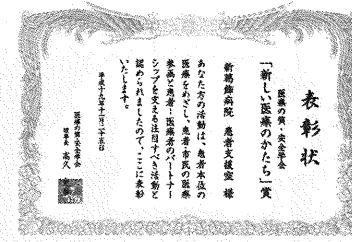 表彰状
医療の質・安全学会
「新しい医療のかたち」賞
新葛飾病院 患者支援室 様
あなた方の活動は、患者本位の
医療をめざし、患者・市民の医療
参画と患者・医療者のパートナー
シップを支える注目すべき活動と
認められましたので、ここに表彰
いたします。
平成十九年十一月二十五日
医療の質・安全学会
理事長 高久